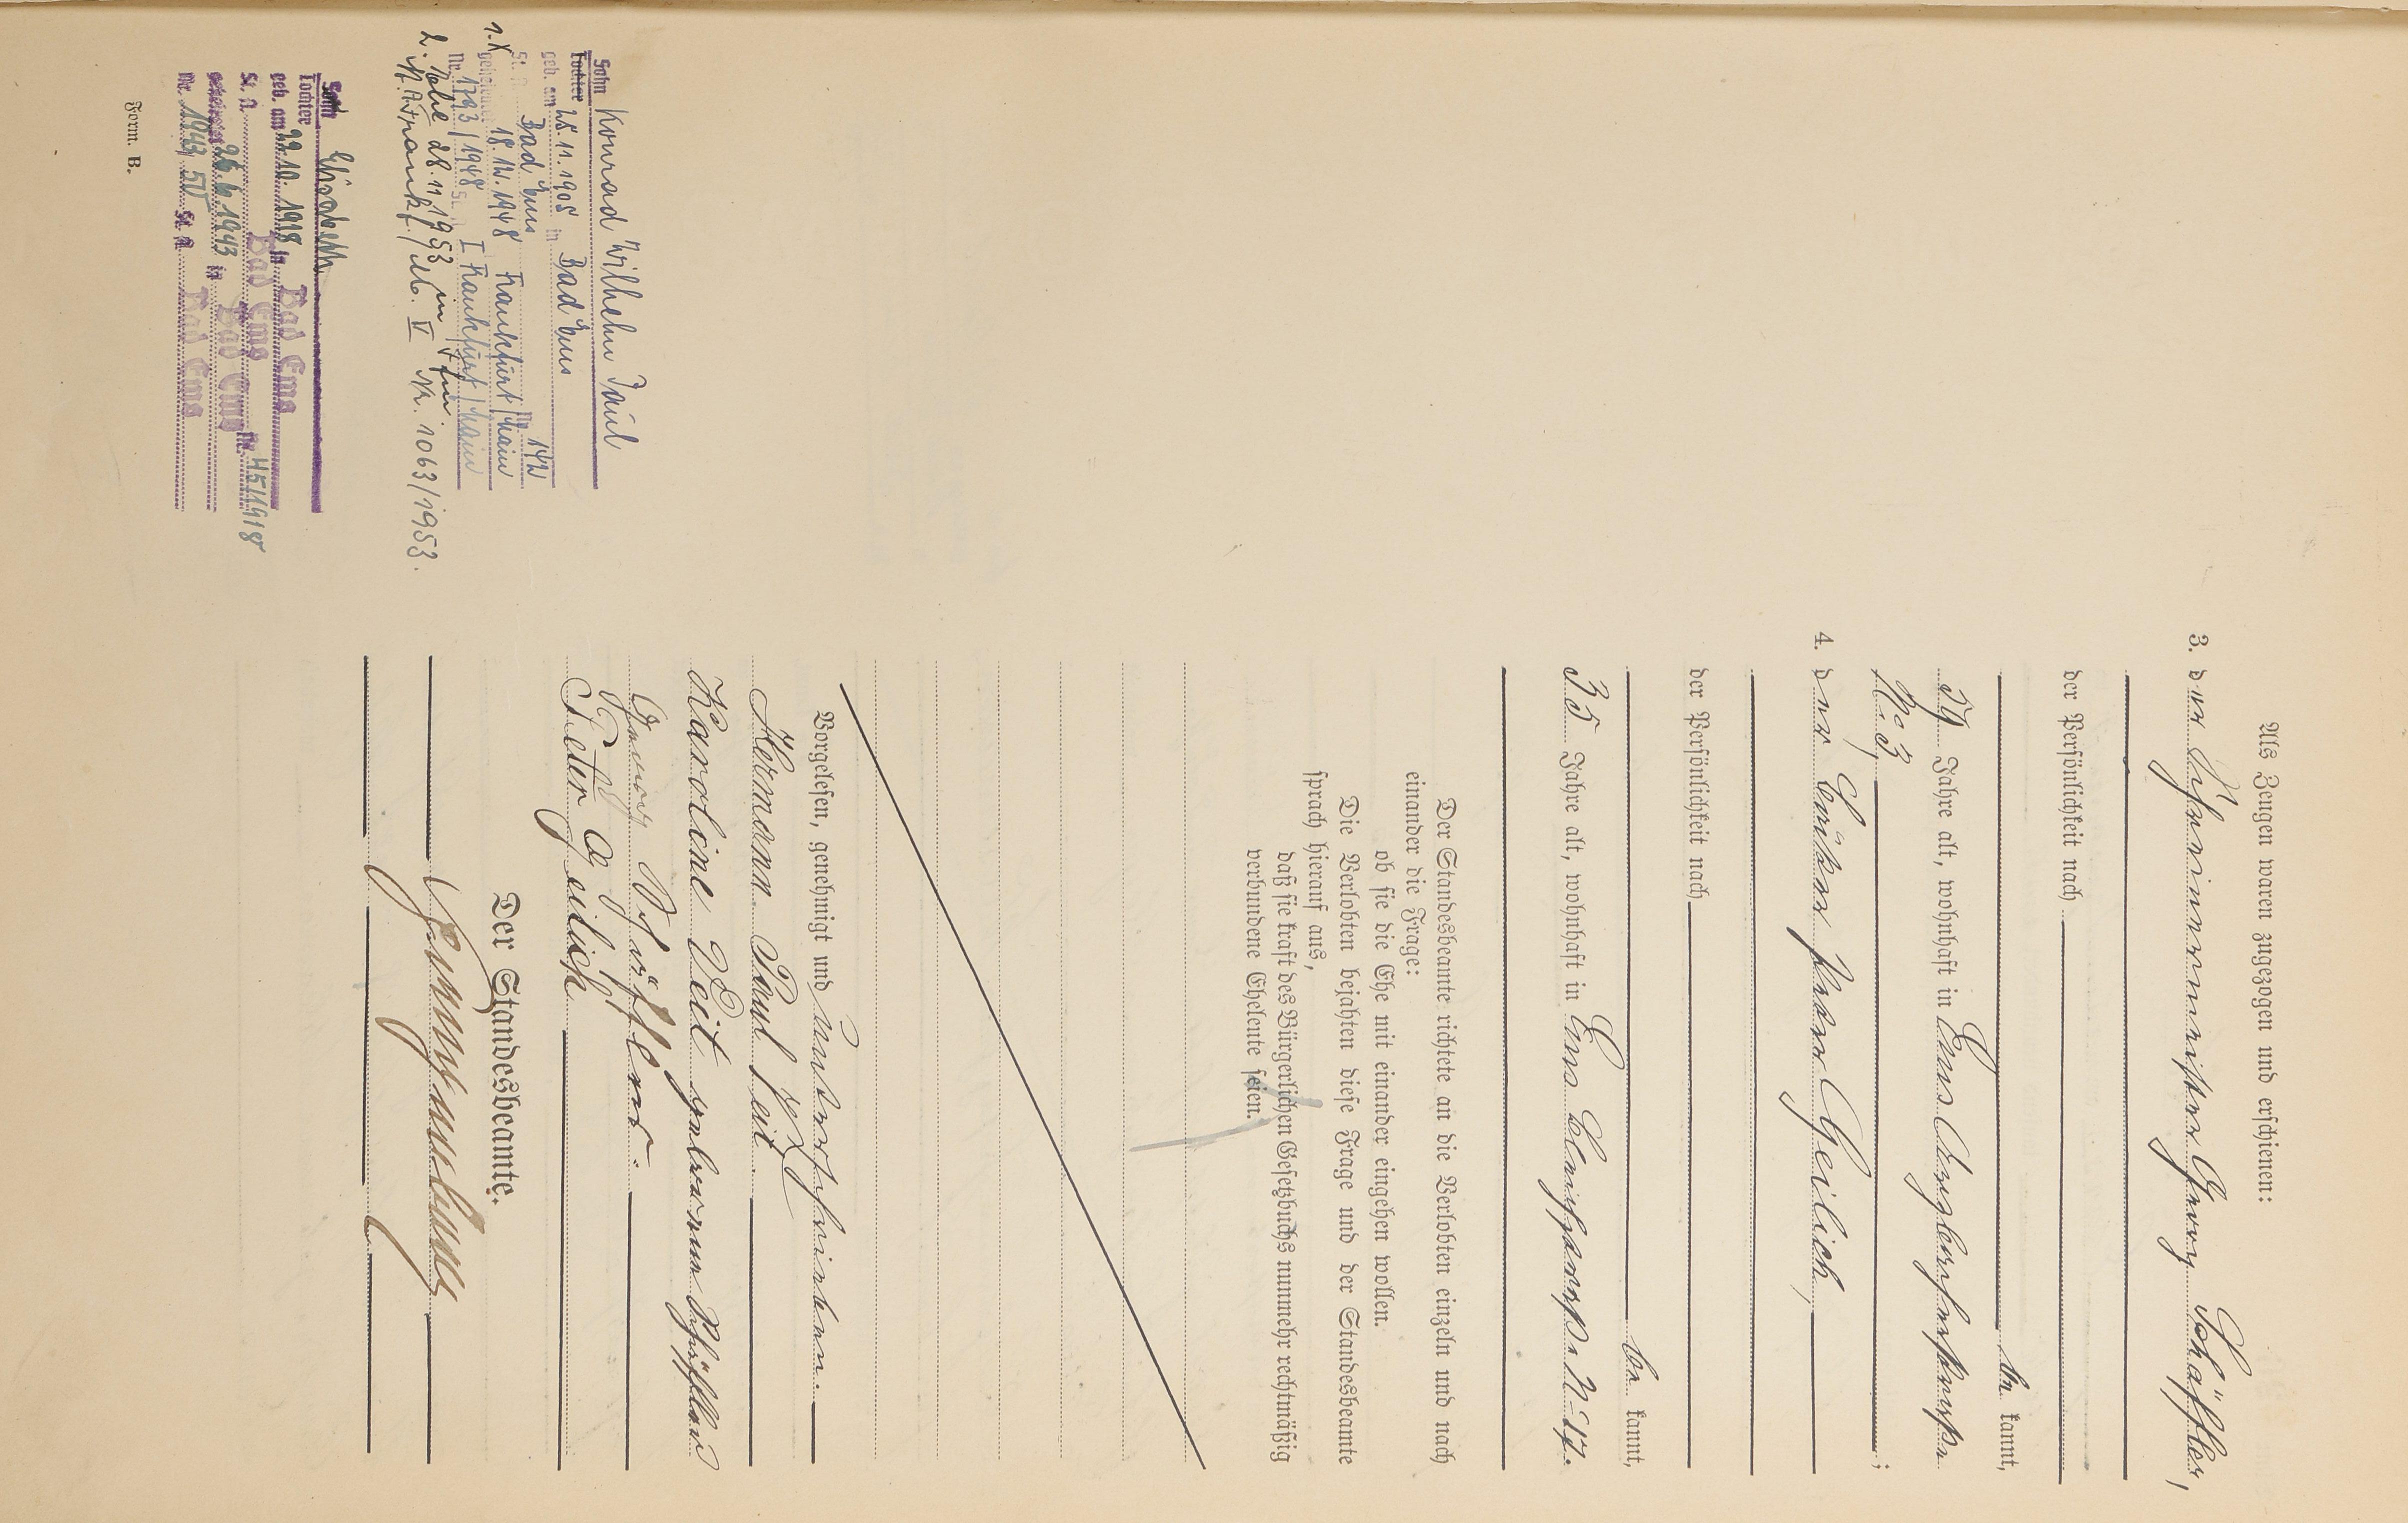 Als Zeugen waren zugezogen und erschienen:
3. der Schreinermeister Georg Schäffler,
der Persönlichkeit nach
be kannt,
59 Jahre alt, wohnhaft in Ems
No 3, ;
4. der Peter Geilich,
der Persönlichkeit nach
be kannt,
35 Jahre alt, wohnhaft in Ems N. 17.
Der Standesbeamte richtete an die Verlobten einzeln und nach
einander die Frage:
ob sie die Ehe mit einander eingehen wollen.
Die Verlobten bejahten diese Frage und der Standesbeamte
sprach hierauf aus,
daß sie kraft des Bürgerlichen Gesetzbuchs nunmehr rechtmäßig
verbundene Eheleute seien.
Vorgelesen, genehmigt und unterschrieben.
Hermann Paul Veit
Karoline Veit geborene Schäffler
Georg Schäffler.
Peter Geilich
Der Standesbeamte.
Sohn Konrad Wilhelm Paul
Tochter
geb. am 25.11.1905 in Bad Ems
St. A. Bad Ems Nr. 142
1. geheiratet 18.12.1948 Frankfurt/Main
Nr. 1793/1948 St. A. I Frankfurt/Main
2. Ehe 28.11.1953 in Ffm
St. A. Frankf./M. V Nr. 1063/1953.
Sohn Elisabeth
Tochter
geb. am 22.10.1918 in Bad Ems
St. A. Bad Ems Nr. 115/1918
geheiratet 26.6.1943 in Bad Ems
Nr. 1943, 50 St. A. Bad Ems
Form. B.